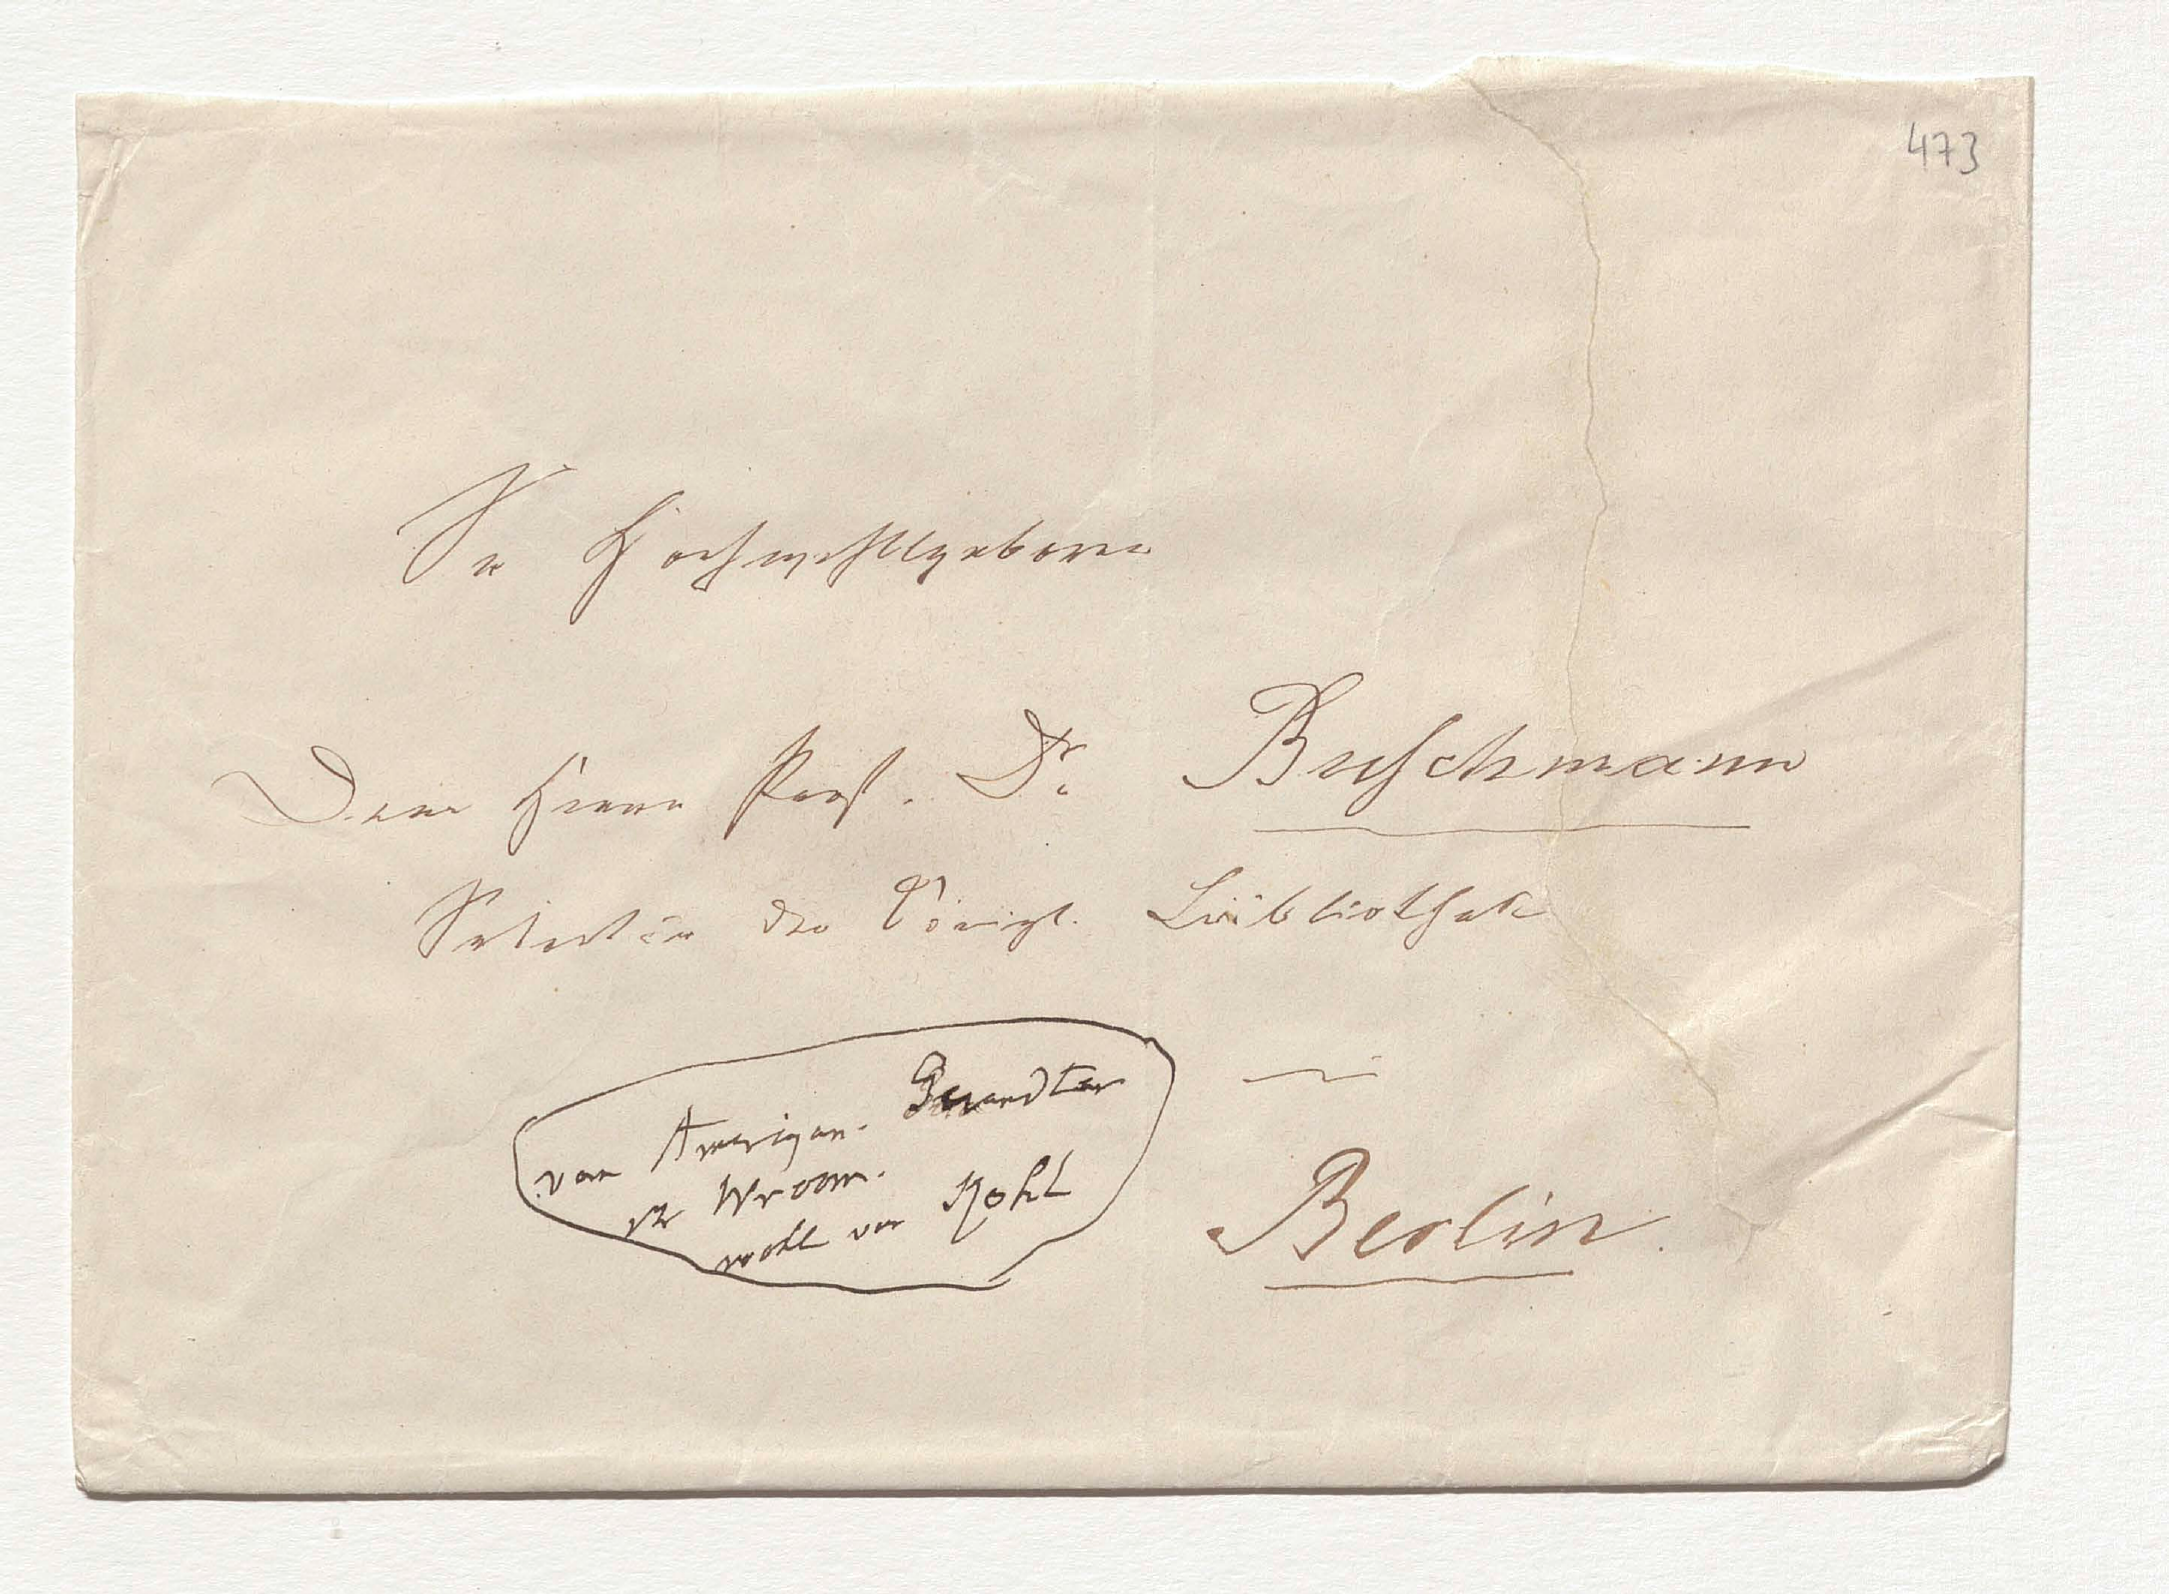 473
Sr Hochwohlgeboren
Dem Herrn Prof. Dr. Buschmann
der Königl. Bibliothek
Berlin.
vom Amerigan. Gesandten
Mr Wroom.
wohl von Kohl